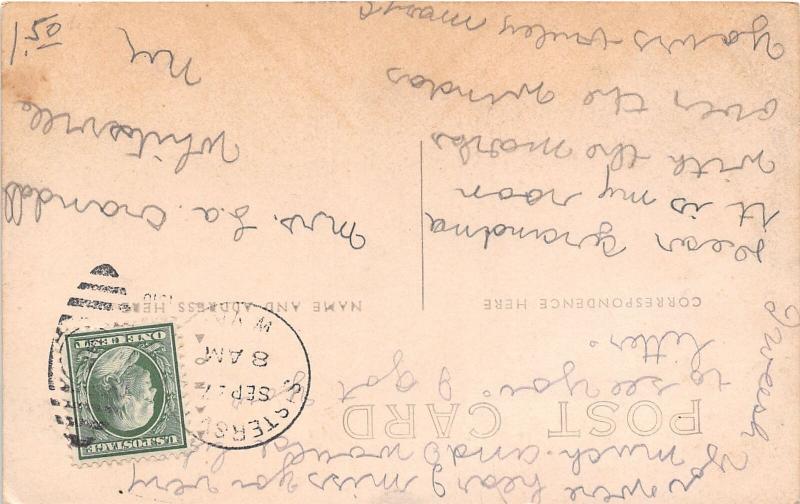 POST CARD
CORRESPONDENCE HERE
NAME AND ADDRESS HERE
Dear grandma
It is my room
with the marks
over the windos
yours truley
I weesh
you were hear I miss you very
much. and would
to see you. I got
letter.
Mrs. Crandall
Whitesville
N y
1 50
SISTERS
SEP
8 AM
W.VA.
U.S.POSTAGE
ONE CENT